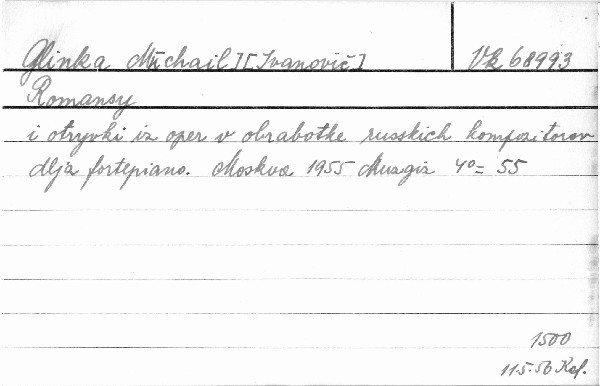 Glinka Michail][Ivanovič] Vk 68993
Romansy
i otryvki iz oper v obrabotke russkich kompozitorov
dlja fortepiano. Moskva 1955 Muzgiz 4°= 55
1500
115.56 Kal.